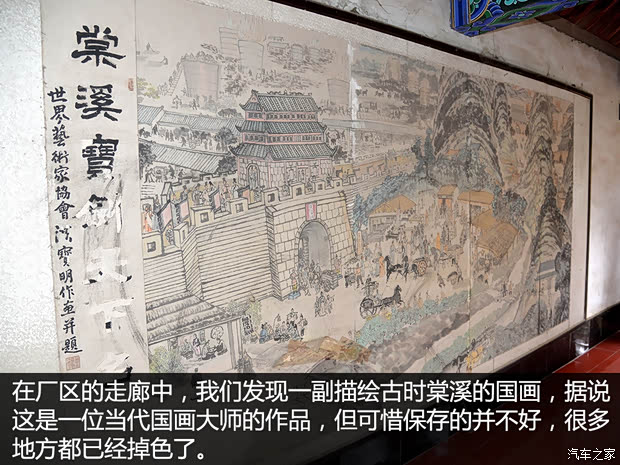 棠溪寶劍天下
世界藝術家協會寶明作畫并題
在厂区的走廊中，我们发现一副描绘古时棠溪的国画，据说
这是一位当代国画大师的作品，但可惜保存的并不好，很多
地方都已经掉色了。
汽车之家